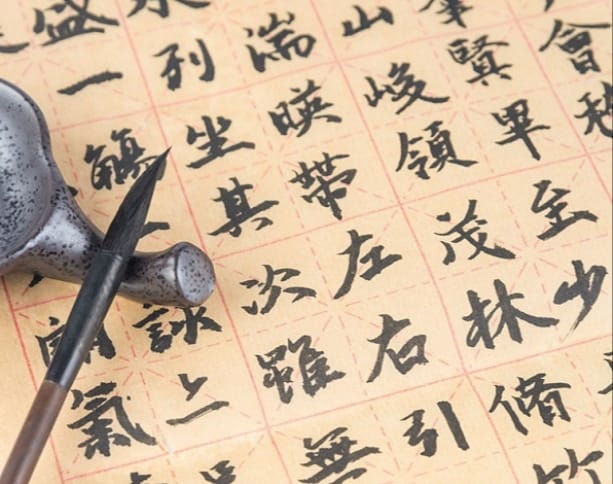 會
賢畢至少
山峻領茂林脩竹
湍暎帶左右引
列坐其次雖無
盛一觴一詠上
氣